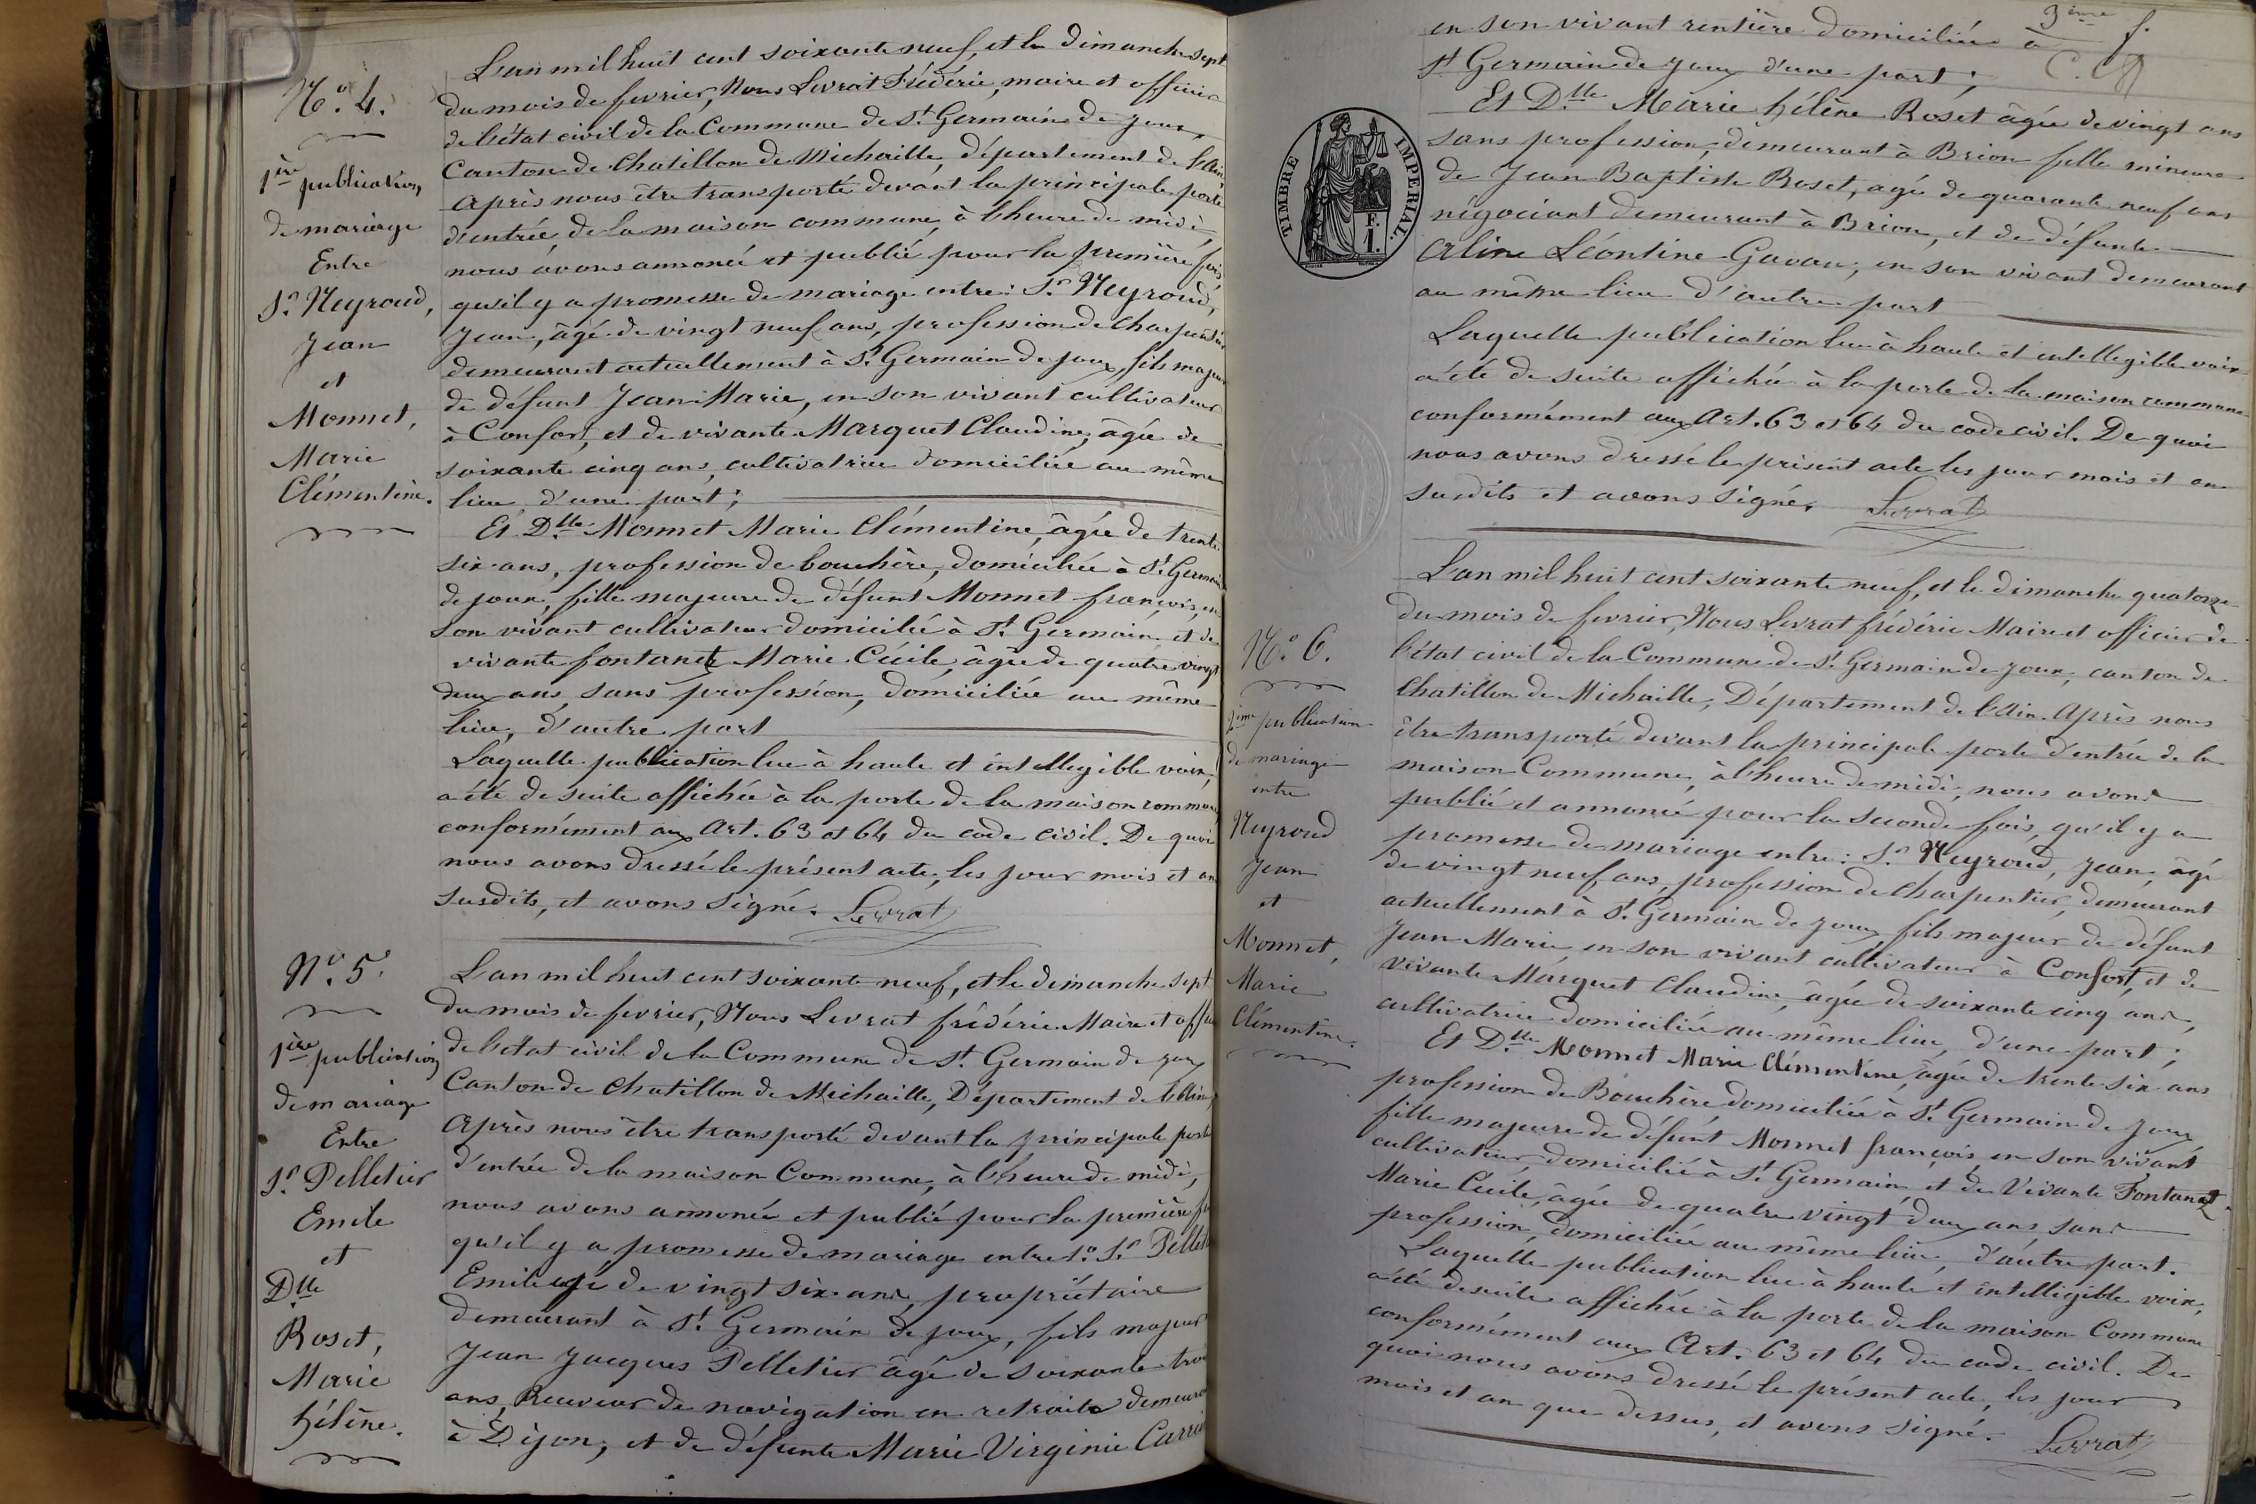 N.° 4.
1ère publication
de mariage
Entre
Sr. Neyroud,
Jean
et
Monnet,
Marie
Clémentine.
L'an mil huit cent soixante neuf, et le dimanche sept
du mois de fevrier, Nous Levrat Frédéric, maire et officier
de l'état civil de la Commune de St. Germain de Joux,
Canton de Chatillon de Michaille, département de l'Ain
Après nous être transporté devant la principale porte
d'entrée, de la maison commune, à l'heure de midi,
nous avons annoncé et publié pour la première fois,
qu'il y a promesse de mariage entre: Sr. Neyroud,
Jean, âgé de vingt neuf ans, profession de charpentier
demeurant actuellement à St. Germain de joux, fils majeur
de défunt Jean Marie, en son vivant cultivateur
à Confort, et de vivante Marquet Claudine, âgée de
soixante cinq ans, cultivatrice domiciliée au même
lieu, d'une part;
Et Dlle. Monnet Marie Clémentine, âgée de trente
six ans, profession de bouchère, domiciliée à St. Germain
de joux, fille majeure de défunt Monnet françois, en
son vivant cultivateur domicilié à St. Germain et de
vivante fontanet Marie Cécile, âgée de quatre vingt
deux ans, sans profession, domiciliée au même
lieu, d'autre part
Laquelle publication lue à haute et intelligible voix,
a été de suite affichée à la porte de la maison commune
conformément aux Art. 63 et 64 du code civil. De quoi
nous avons dressé le présent acte, les jour mois et an
susdits, et avons signé. Levrat
N.° 5.
1ière publication
de mariage
Entre
Sr. Pelletier
Emile
et
Dlle
Roset,
Marie
hélène.
L'an mil huit cent soixante neuf, et le dimanche sept
du mois de fevrier, Nous Levrat frédéric Maire et offic
de l'état civil de la Commune de St. Germain de joux
Canton de Chatillon de Michaille, Département de l'Ain,
Après nous être transporté devant la principale porte
d'entrée de la maison Commune, à l'heure de midi,
nous avons annoncé et publié pour la première fo
qu'il y a promesse de mariage entre Sr. Pellet
Emile agé de vingt six ans, propriétaire
demeurant à St. Germain de joux, fils majeur
Jean Jacques Pelletier âgé de soixante trois
ans, Receveur de navigation en retraite demeurant
à Dijon, et de défunte Marie Virginie Carri
3ème f.
en son vivant rentière domiciliée à
St Germain de joux d'une part;
Et Dlle. Marie hélène Roset âgée de vingt ans
sans profession, demeurant à Brion fille mineure
de Jean Baptiste Roset, agé de quarante neuf ans
négociant demeurant à Brion, et de défunte
Aline Léontine Gavan, en son vivant demeurant
au même lieu d'autre part
Laquelle publication lue à haute et intellegible voix
a été de suite affichée à la porte de la maison commune
conformément aux Art. 63 et 64 du code civil. De quoi
nous avons dressé le présent acte les jour mois et an
susdits et avons signé. Levrat
TIMBRE IMPÉRIAL.
F.
1.
N.° 6.
2ème publication
de mariage
entre
Neyroud
Jean
et
Monnet,
Marie
Clémentine.
L'an mil huit cent soixante neuf, et le dimanche quatorze
du mois de fevrier, Nous Levrat frédéric Maire et officier de
l'état civil de la Commune de St. Germain de joux, canton de
Chatillon de Michaille, Département de l'Ain. Après nous
être transporté devant la principale porte d'entrée de la
maison Commune, à l'heure de midi, nous avons
publié et annoncé pour la seconde fois, qu'il y a
promesse de mariage entre: Sr. Neyroud, Jean, âgé
de vingt neuf ans, profession de charpentier, demeurant
actuellement à St. Germain de joux fils majeur de défunt
Jean Marie, en son vivant cultivateur à Confort, et de
vivante Marquet Claudine, âgée de soixante cinq ans,
cultivatrice domiciliée au même lieu, d'une part;
Et Dlle. Monnet Marie Clémentine, âgée de trente six ans
profession de Bouchère domiciliée à St. Germain de joux
fille majeure de défunt Monnet françois, en son vivant
cultivateur domicilié à St. Germain, et de Vivante Fontanet.
Marie Cécile, âgée de quatre vingt deux ans, sans
profession, domiciliée au même lieu, d'autre part.
Laquelle publication lue à haute et intelligible voix,
a été de suite affichée à la porte de la maison Commune
conformément aux Art. 63 et 64 du code civil. De
quoi nous avons dressé le présent acte, les jour
mois et an que dessus, et avons signé. Levrat